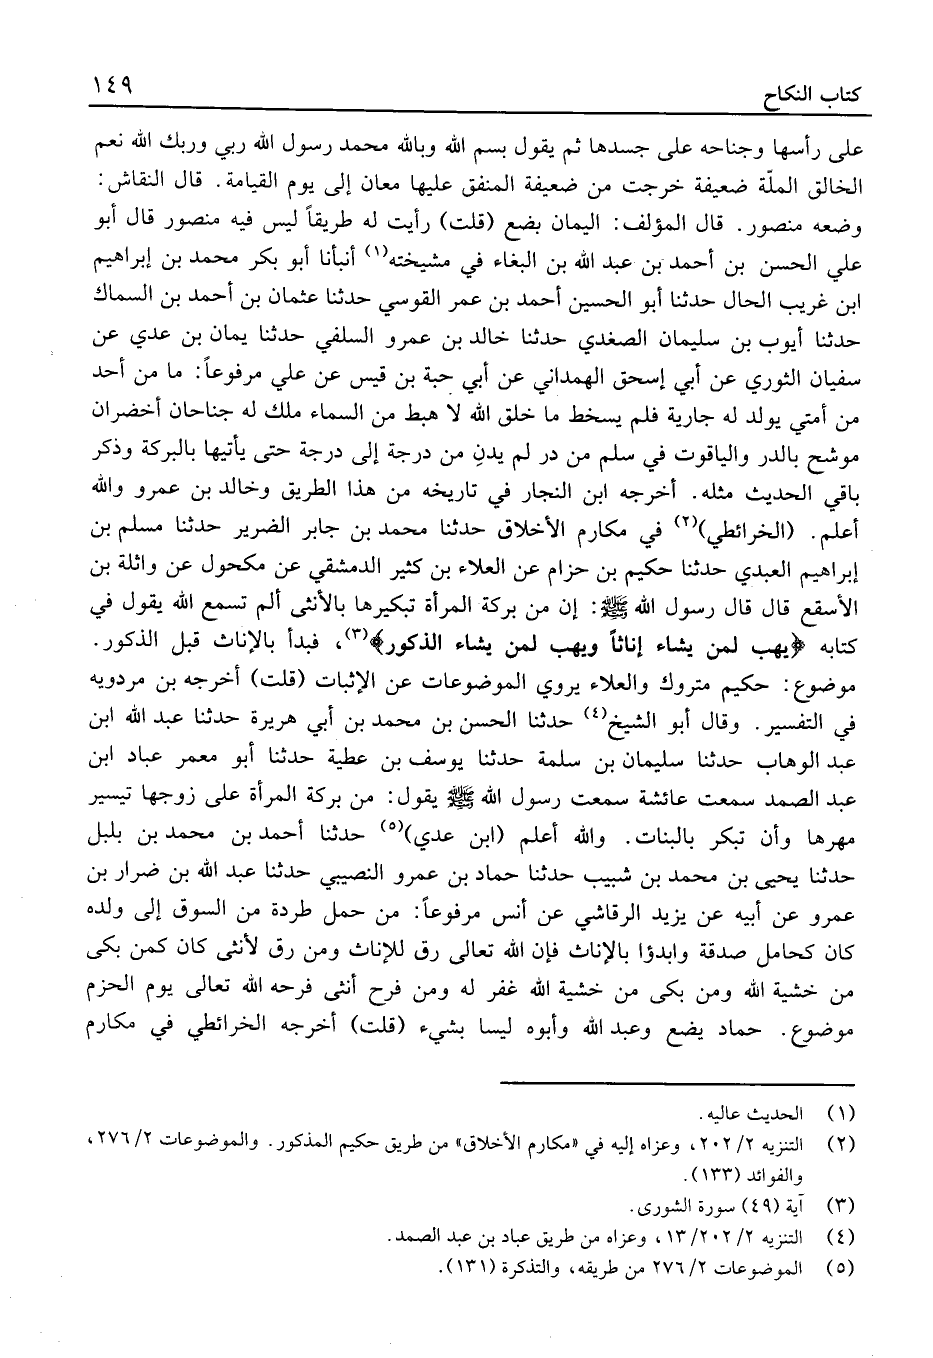 كتاب النكاح ١٤٩
على رأسها وجناحه على جسدها ثم يقول بسم الله وبالله محمد رسول الله ربي وربك الله نعم
الخالق الملّة ضعيفة خرجت من ضعيفة المنفق عليها معان إلى يوم القيامة. قال النقاش:
وضعه منصور. قال المؤلف: اليمان بضع (قلت) رأيت له طريقاً ليس فيه منصور قال أبو
علي الحسن بن أحمد بن عبد الله بن البغاء في مشيخته(١) أنبأنا أبو بكر محمد بن إبراهيم
ابن غريب الحال حدثنا أبو الحسين أحمد بن عمر القوسي حدثنا عثمان بن أحمد بن السماك
حدثنا أيوب بن سليمان الصغدي حدثنا خالد بن عمرو السلفي حدثنا يمان بن عدي عن
سفيان الثوري عن أبي إسحق الهمداني عن أبي حبة بن قيس عن علي مرفوعاً: ما من أحد
من أمتي يولد له جارية فلم يسخط ما خلق الله لا هبط من السماء ملك له جناحان أخضران
موشح بالدر والياقوت في سلم من در لم يدنِ من درجة إلى درجة حتى يأتيها بالبركة وذكر
باقي الحديث مثله. أخرجه ابن النجار في تاريخه من هذا الطريق وخالد بن عمرو والله
أعلم. (الخرائطي)(٢) في مكارم الأخلاق حدثنا محمد بن جابر الضرير حدثنا مسلم بن
إبراهيم العبدي حدثنا حكيم بن حزام عن العلاء بن كثير الدمشقي عن مكحول عن واثلة بن
الأسقع قال قال رسول الله ﷺ: إن من بركة المرأة تبكيرها بالأنثى ألم تسمع الله يقول في
كتابه ﴿يهب لمن يشاء إناثاً ويهب لمن يشاء الذكور﴾(٣)، فبدأ بالإناث قبل الذكور.
موضوع: حكيم متروك والعلاء يروي الموضوعات عن الإثبات (قلت) أخرجه بن مردويه
في التفسير. وقال أبو الشيخ(٤) حدثنا الحسن بن محمد بن أبي هريرة حدثنا عبد الله ابن
عبد الوهاب حدثنا سليمان بن سلمة حدثنا يوسف بن عطية حدثنا أبو معمر عباد ابن
عبد الصمد سمعت عائشة سمعت رسول الله ﷺ يقول: من بركة المرأة على زوجها تيسير
مهرها وأن تبكر بالبنات. والله أعلم (ابن عدي)(٥) حدثنا أحمد بن محمد بن بلبل
حدثنا يحيى بن محمد بن شبيب حدثنا حماد بن عمرو النصيبي حدثنا عبد الله بن ضرار بن
عمرو عن أبيه عن يزيد الرقاشي عن أنس مرفوعاً: من حمل طردة من السوق إلى ولده
كان كحامل صدقة وابدؤا بالإناث فإن الله تعالى رق للإناث ومن رق لأنثى كان كمن بكى
من خشية الله ومن بكى من خشية الله غفر له ومن فرح أنثى فرحه الله تعالى يوم الحزم
موضوع. حماد يضع وعبد الله وأبوه ليسا بشيء (قلت) أخرجه الخرائطي في مكارم
(١) الحديث عاليه.
(٢) التنزيه ٢٠٢/٢، وعزاه إليه في «مكارم الأخلاق» من طريق حكيم المذكور. والموضوعات ٢٧٦/٢،
والفوائد (١٣٣).
(٣) آية (٤٩) سورة الشورى.
(٤) التنزيه ٢٠٢/٢/١٣، وعزاه من طريق عباد بن عبد الصمد.
(٥) الموضوعات ٢٧٦/٢ من طريقه، والتذكرة (١٣١).